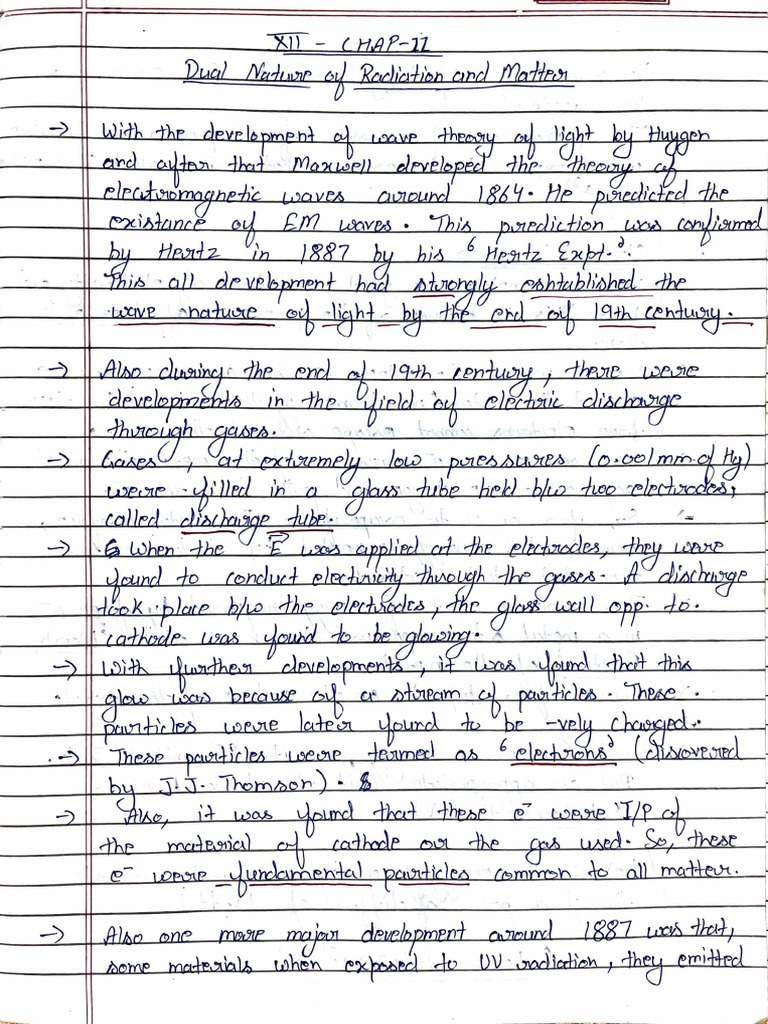 XII - CHAP-II
Dual Nature of Radiation and Matter
→ With the development of wave theory of light by Huygen
and after that Maxwell developed the theory of
electromagnetic waves around 1864. He predicted the
existance of EM waves. This prediction was confirmed
by Hertz in 1887 by his 'Hertz Expt.'.
This all development had strongly eshtablished the
wave nature of light by the end of 19th century.
→ Also during the end of 19th century, there were
developments in the field of electric discharge
through gases.
→ Gases, at extremely low pressures (0.001mm of Hg)
were filled in a glass tube held b/w two electrodes,
called discharge tube.
→ When the E⃗ was applied at the electrodes, they were
found to conduct electricity through the gases. A discharge
took place b/w the electrodes, the glass wall opp. to.
cathode was found to be glowing.
→ With further developments, it was found that this
glow was because of a stream of particles. These
particles were later found to be -vely charged.
→ These particles were termed as 'electrons' (discovered
by J.J. Thomson).
→ Also, it was found that these e⁻ were I/P of
the material of cathode or the gas used. So, these
e⁻ were fundamental particles common to all matter.
→ Also one more major development around 1887 was that,
some materials when exposed to UV radiation, they emitted